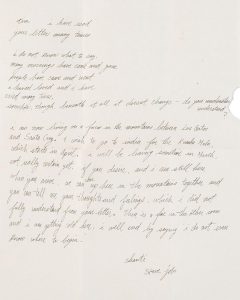 i have read
your letter many times
i do not know what to say.
many mornings have come and gone
people have come and went
i haved loved and i have
cried many times.
somehow though beneath it all it doesnt change - do you understand
understand,
i am now living on a farm in the mountains between Los Gatos
and Santa Cruz. i wish to go to india for the Kumba Mela
which starts in april. i will be leaving sometime in March,
not really certain yet. if you desire, and i am still here
when you come, we can be here in the mountains together and
you can tell me your thoughts and feelings, which i did not
fully understand from your letter. This is a fire in the other room
and i am getting cold here, i will end by saying i do not even
know where to begin.
shanti
steve jobs